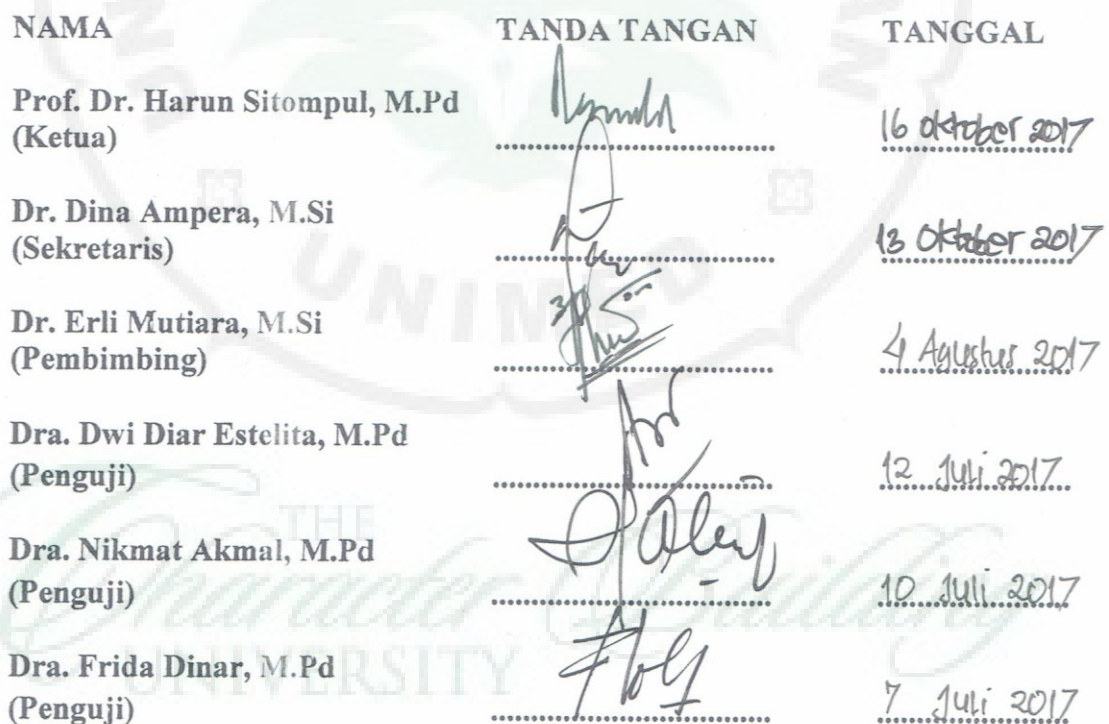 NAMA TANDA TANGAN TANGGAL
Prof. Dr. Harun Sitompul, M.Pd
(Ketua) 16 Oktober 2017
Dr. Dina Ampera, M.Si
(Sekretaris) 13 Oktober 2017
UNIMED
Dr. Erli Mutiara, M.Si
(Pembimbing) 4 Agustus 2017
Dra. Dwi Diar Estelita, M.Pd
(Penguji) 12 Juli 2017
THE
Dra. Nikmat Akmal, M.Pd
(Penguji) 10 Juli 2017
Character Building
UNIVERSITY
Dra. Frida Dinar, M.Pd
(Penguji) 7 Juli 2017